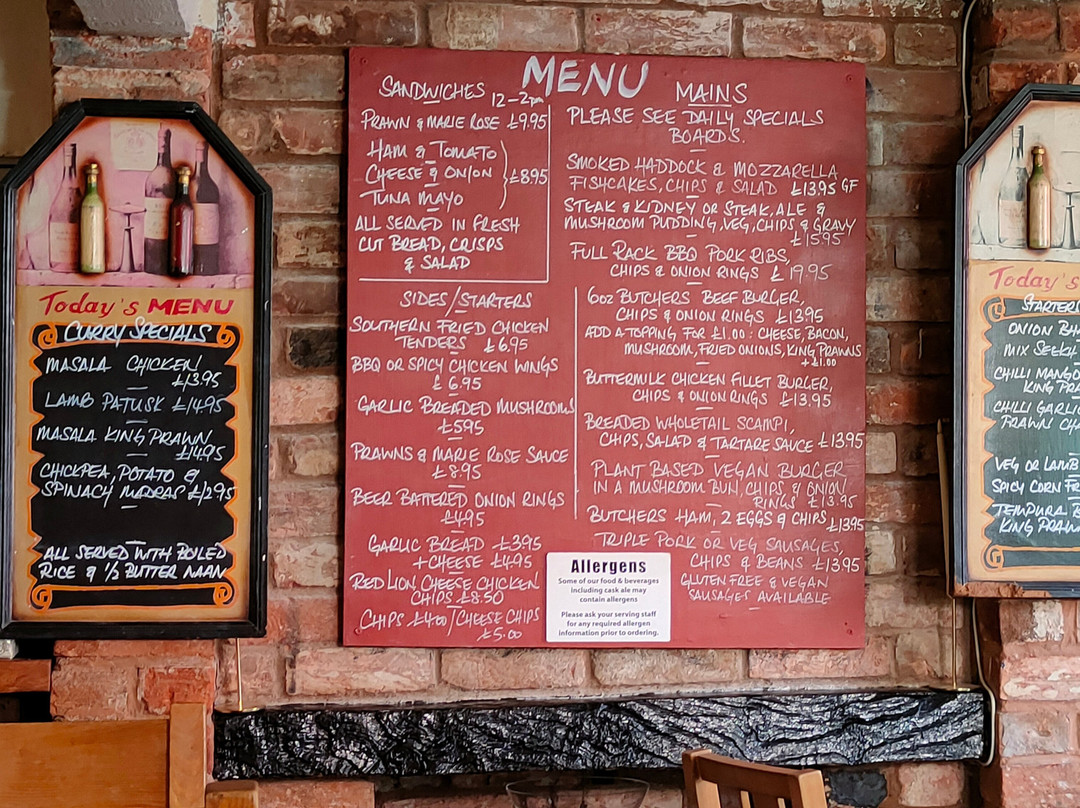 Today's MENU
CURRY SPECIALS
MASALA CHICKEN
£13.95
LAMB PATUSK £14.95
MASALA KING PRAWN
£14.95
CHICKPEA, POTATO &
SPINACH MADRAS £12.95
ALL SERVED WITH BOILED
RICE & ½ BUTTER NAAN
MENU
SANDWICHES 12-2pm
PRAWN & MARIE ROSE £9.95
HAM & TOMATO
CHEESE & ONION £8.95
TUNA MAYO
ALL SERVED IN FRESH
CUT BREAD, CRISPS
& SALAD
SIDES/STARTERS
SOUTHERN FRIED CHICKEN
TENDERS £6.95
BBQ OR SPICY CHICKEN WINGS
£6.95
GARLIC BREADED MUSHROOMS
£5.95
PRAWNS & MARIE ROSE SAUCE
£8.95
BEER BATTERED ONION RINGS
£4.95
GARLIC BREAD £3.95
+ CHEESE £4.95
RED LION CHEESE CHICKEN
CHIPS £8.50
CHIPS £4.00/CHEESE CHIPS
£5.00
MAINS
PLEASE SEE DAILY SPECIALS
BOARDS.
SMOKED HADDOCK & MOZZARELLA
FISHCAKES, CHIPS & SALAD £13.95 GF
STEAK & KIDNEY OR STEAK, ALE &
MUSHROOM PUDDING, VEG, CHIPS & GRAVY
£15.95
FULL RACK BBQ PORK RIBS,
CHIPS & ONION RINGS £19.95
6oz BUTCHERS BEEF BURGER,
CHIPS & ONION RINGS £13.95
ADD A TOPPING FOR £1.00: CHEESE, BACON,
MUSHROOM, FRIED ONIONS, KING PRAWNS
+£1.00
BUTTERMILK CHICKEN FILLET BURGER,
CHIPS & ONION RINGS £13.95
BREADED WHOLETAIL SCAMPI,
CHIPS, SALAD & TARTARE SAUCE £13.95
PLANT BASED VEGAN BURGER
IN A MUSHROOM BUN, CHIPS & ONION
RINGS £13.95
BUTCHERS HAM, 2 EGGS & CHIPS £13.95
TRIPLE PORK OR VEG SAUSAGES,
CHIPS & BEANS £13.95
GLUTEN FREE & VEGAN
SAUSAGES AVAILABLE
Allergens
Some of our food & beverages
including cask ale may
contain allergens
Please ask your serving staff
for any required allergen
information prior to ordering.
Today's
STARTER
ONION BH
MIX SEEKH
CHILLI MANGO
KING PRA
CHILLI GARLIC
PRAWN CH
VEG OR LAMB
SPICY CORN FR
TEMPURA B
KING PRAW